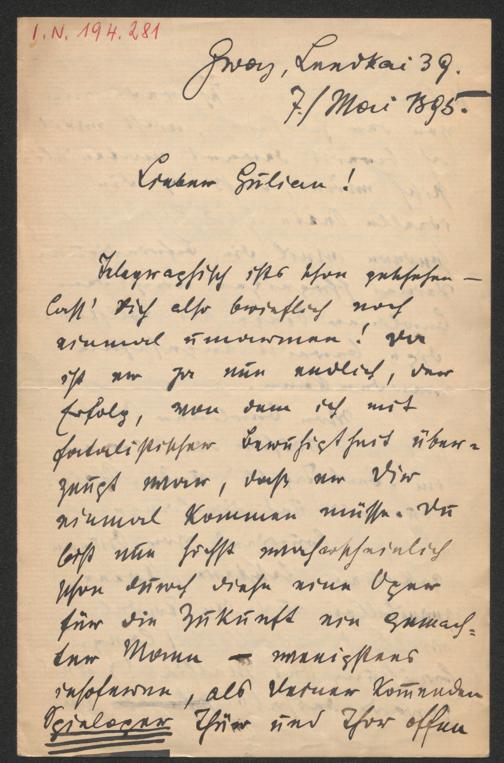 I.N. 194.281
Graz, Lendkai 39.
7./Mai 1895.
Lieber Gulian!
Telegraphisch ists schon geschehen —
lass' dich also brieflich noch
einmal umarmen! Da
ist er ja nun endlich, der
Erfolg, von dem ich mit
fatalistischer Beruhigtheit über=
zeugt war, daß er Dir
einmal kommen müsse. Du
bist nun höchst wahrscheinlich
schon durch diese eine Oper
für die Zukunft ein gemach-
ter Mann — wenigstens
insoferne, als Deiner kommenden
Spieloper Thür und Thor offen